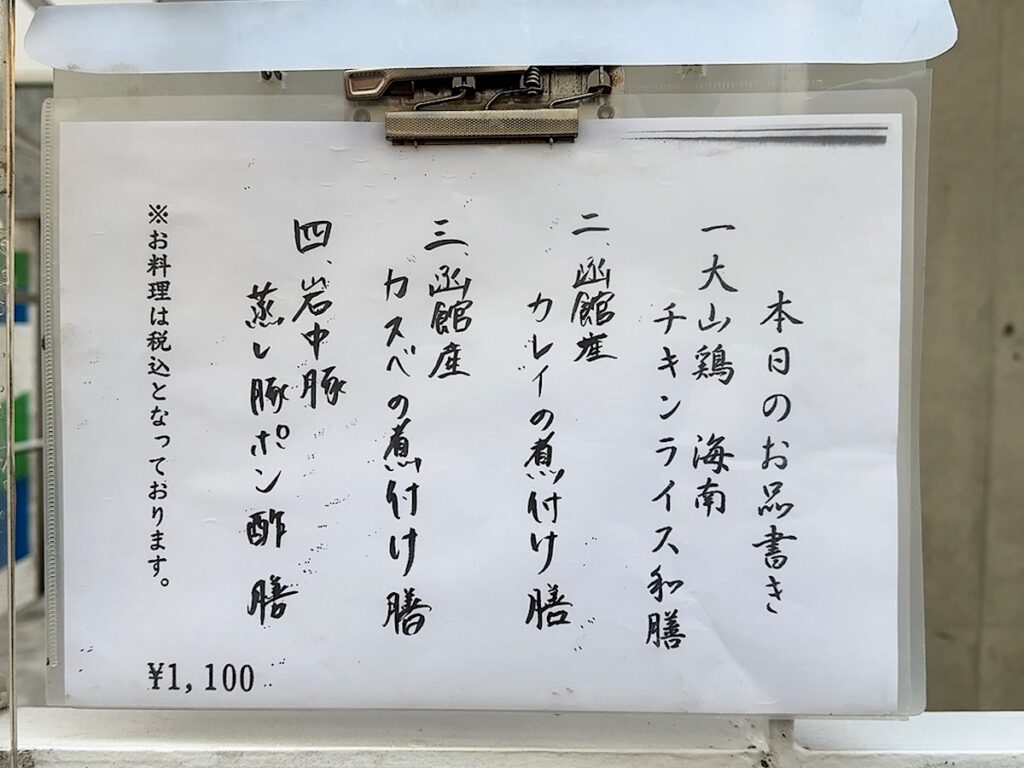 本日のお品書き
一大山鶏 海南
チキンライス和膳
二、函館産
カレイの煮付け膳
三、函館産
カスベの煮付け膳
四、岩中豚
蒸し豚ポン酢膳
※お料理は税込となっております。
¥1,100